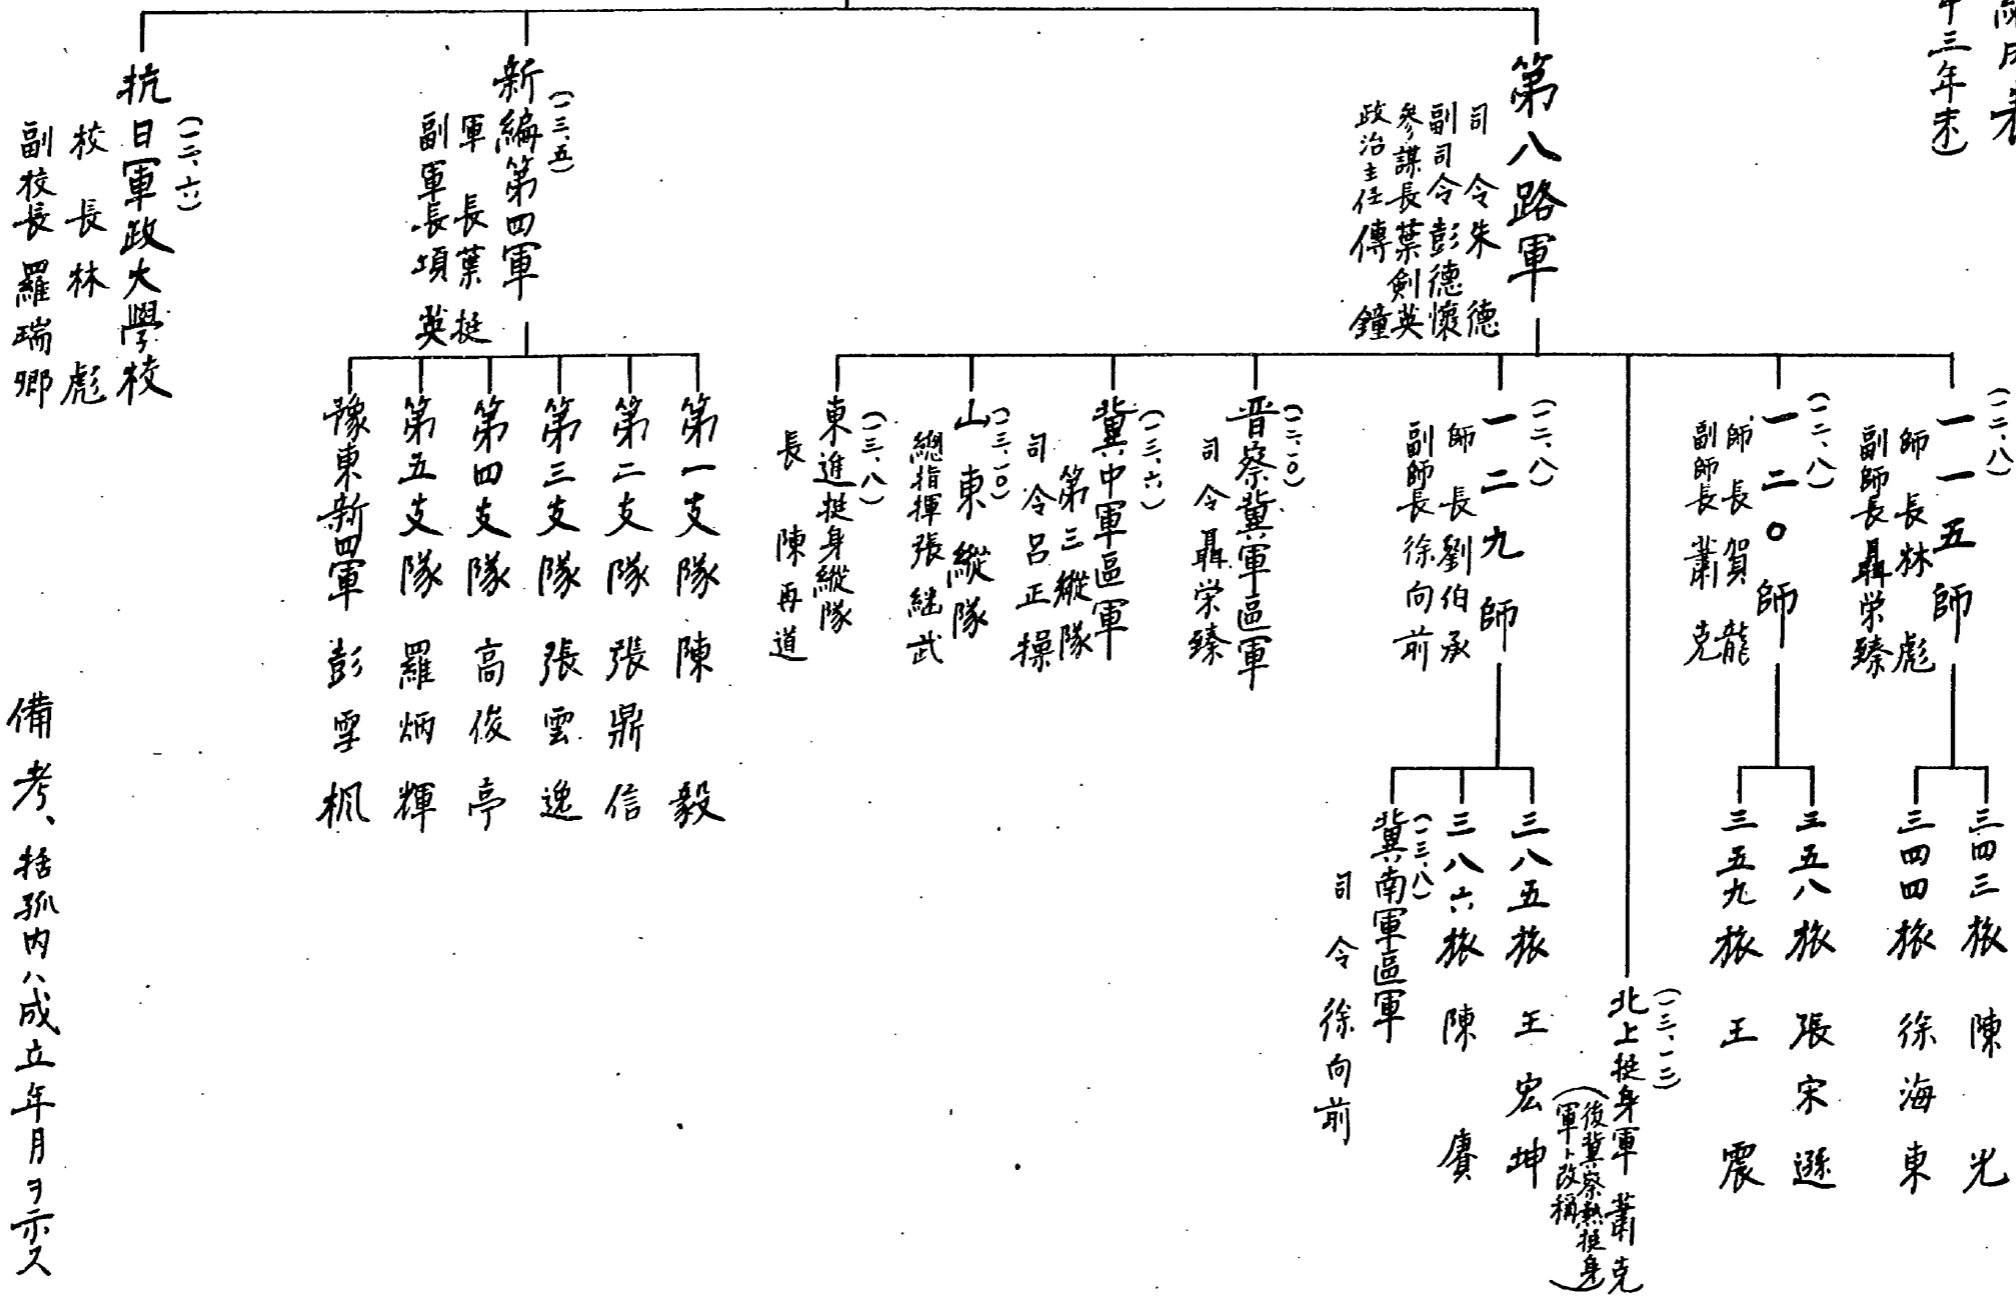 年三年末）
第八路軍
司令朱德
副司令彭德懷
參謀長葉劍英
政治主任傅鐘
（一二、八）
一一五師
師長林彪
副師長聶栄臻
三四三旅 陳光
三四四旅 徐海東
（一二、八）
一二〇師
師長賀龍
副師長蕭克
三五八旅 張宋遜
三五九旅 王震
（一三、一二）
北上挺身軍 蕭克
（後冀察熱挺身
軍ト改稱）
（一二、八）
一二九師
師長劉伯承
副師長徐向前
三八五旅 王宏坤
三八六旅 陳賡
（一三、八）
冀南軍區軍
司令徐向前
（一二、一〇）
晋察冀軍區軍
司令聶栄臻
（一三、六）
冀中軍區軍
第三縱隊
司令呂正操
（一三、一〇）
山東縱隊
總指揮張継武
（一三、八）
東進挺身縱隊
長 陳再道
（一三、五）
新編第四軍
軍長葉挺
副軍長項英
第一支隊 陳毅
第二支隊 張鼎信
第三支隊 張雲逸
第四支隊 高俊亭
第五支隊 羅炳輝
豫東新四軍 彭雪楓
（一二、六）
抗日軍政大學校
校長林彪
副校長羅瑞卿
備考、括弧内ハ成立年月ヲ示ス